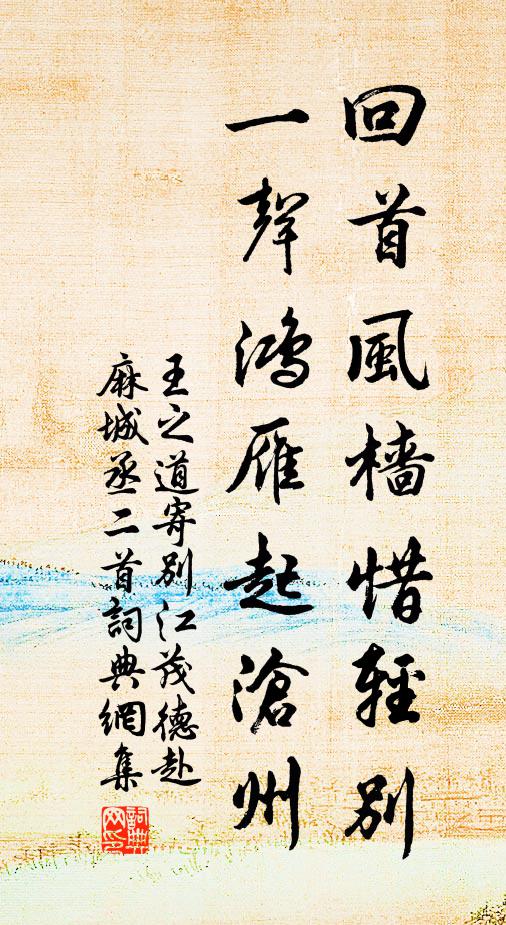 回首風檣惜輕別
一聲鴻雁起滄州
王之道寄別江茂德赴
麻城丞二首詞典網集
詞典
网印